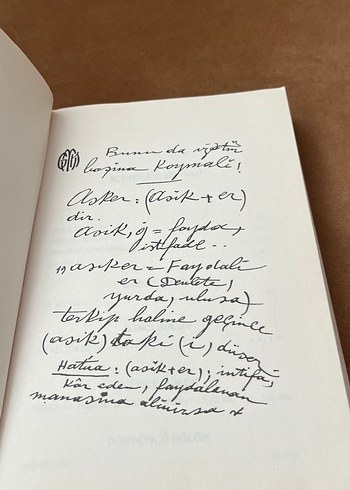 Bunu da
başına koymalı!
Asker: (Asik + er)
dir.
asik, ğ = fayda,
istifade..
asker = Faydalı
er (Devlete,
yurda, ulusa)
terkip haline geçince
(asik) taki (i) düşer
Hatua: (asik+er); intifa,
kâr eden, faydalanan
manasına alınırsa